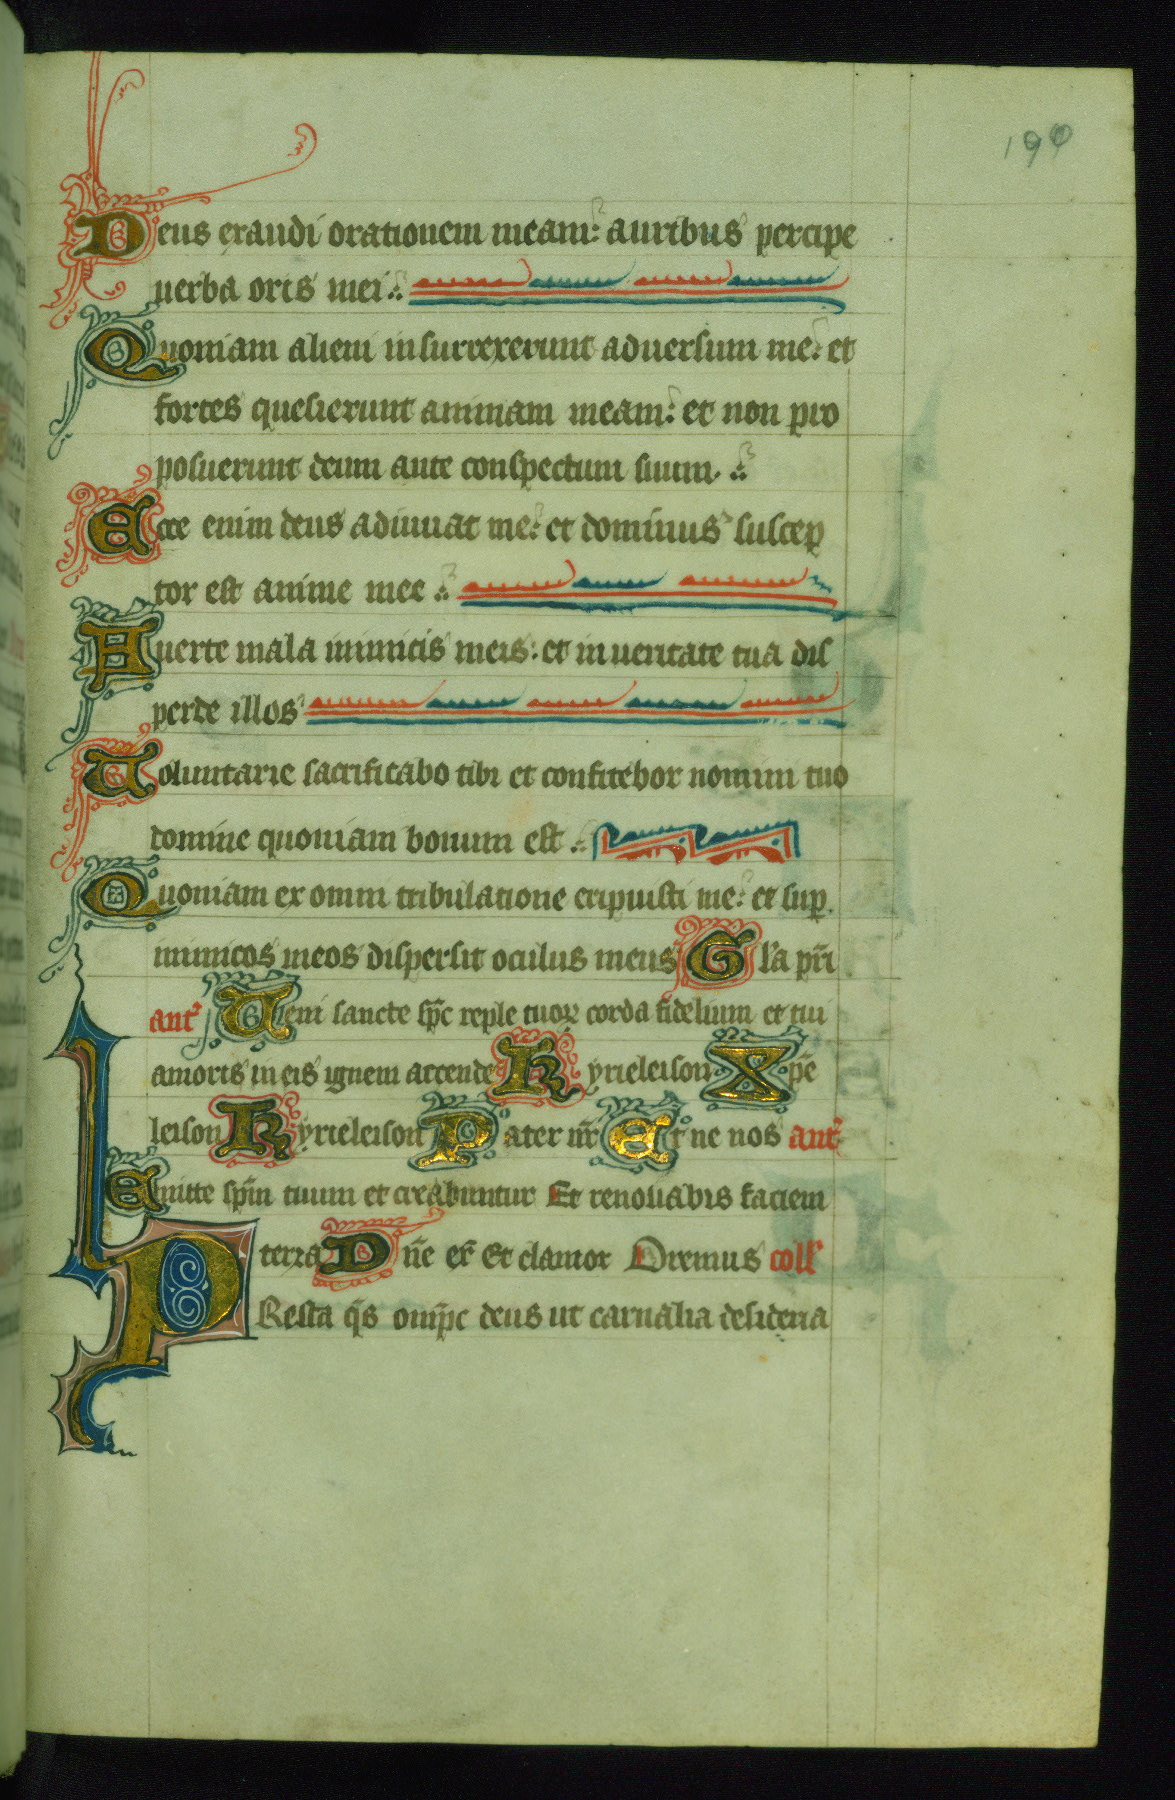 190
Deus exaudi orationem meam: auribus percipe
uerba oris mei
Quoniam alieni insurrexerunt aduersum me: et
fortes quesierunt animam meam: et non pro
posuerunt deum ante conspectum suum.
Ecce enim deus adiuuat me: et dominus suscep
tor est anime mee
Auerte mala inimicis meis: et in ueritate tua dis
perde illos
Voluntarie sacrificabo tibi et confitebor nomini tuo
domine quoniam bonum est
Quoniam ex omni tribulatione eripuisti me: et sup
inimicos meos dispersit oculus meus Gl'a pr̄i
ant' Veni sancte sp̄c reple tuoꝝ corda fidelium et tui
amoris in eis ignem accende Kyrieleison Xp̄e
leison Kyrieleison Pater nr̄ Et ne nos ant'
Emitte sp̄m tuum et creabuntur Et renouabis faciem
terra Dn̄e ex̄ Et clamor Oremus coll'
PResta q̄s omp̄c deus ut carnalia desideria